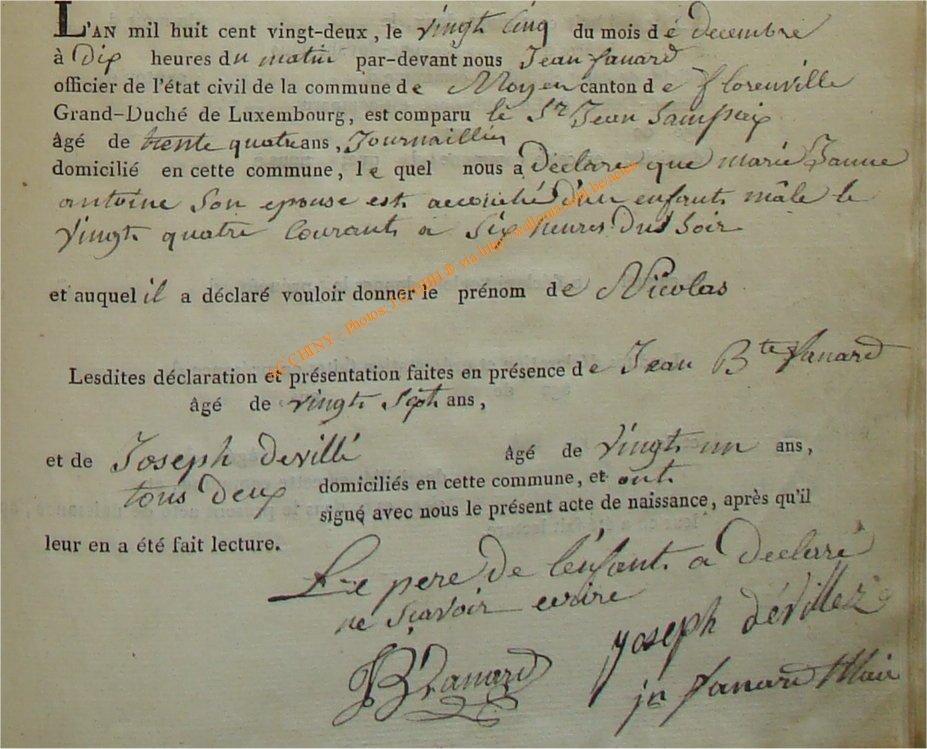 L'AN mil huit cent vingt-deux, le vingt Cinq du mois de Decembre
à Dix heures du matin par-devant nous Jean fanard
officier de l'état civil de la commune de Moyen canton de florenville
Grand-Duché de Luxembourg, est comparu le Sr Jean Sampaix
âgé de trente quatre ans, Journaillier
domicilié en cette commune, le quel nous a Declaré que marie Janne
antoine Son epouse est accouché d'un enfant mâle le
vingt quatre Courant a Six heures Du Soir
et auquel il a déclaré vouloir donner le prénom de Nicolas
Lesdites déclaration et présentation faites en présence de Jean Bte fanard
âgé de vingt Sept ans,
et de Joseph devillé âgé de vingt un ans,
tous Deux domiciliés en cette commune, et ont
signé avec nous le présent acte de naissance, après qu'il
leur en a été fait lecture.
Le pere de l'enfant a Declaré
ne Scavoir ecrire
JB fanard joseph dévillez
jn fanard Mair
CHINY - Photos: via http: